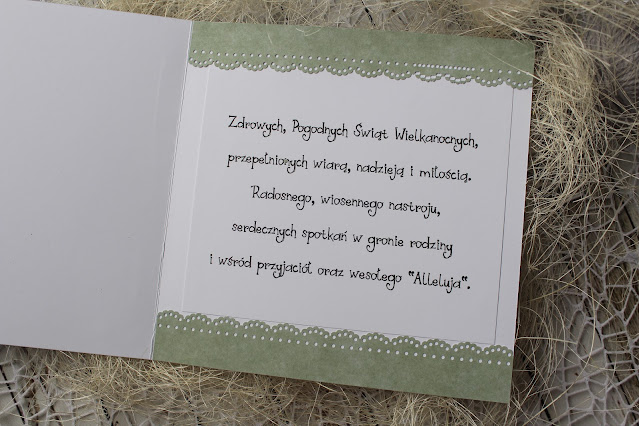 Zdrowych, Pogodnych Świąt Wielkanocnych,
przepełnionych wiarą, nadzieją i miłością.
Radosnego, wiosennego nastroju,
serdecznych spotkań w gronie rodziny
i wśród przyjaciół oraz wesołego "Alleluja".